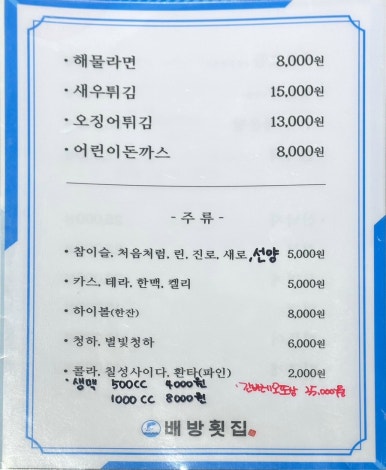 · 해물라면 8,000원
· 새우튀김 15,000원
· 오징어튀김 13,000원
· 어린이돈까스 8,000원
- 주 류 -
· 참이슬, 처음처럼, 린, 진로, 새로, 선양 5,000원
· 카스, 테라, 한맥, 켈리 5,000원
· 하이볼(한잔) 8,000원
· 청하, 별빛청하 6,000원
· 콜라, 칠성사이다, 환타(파인) 2,000원
· 생맥 500CC 4000원
1000CC 8000원
25,000원
배방횟집